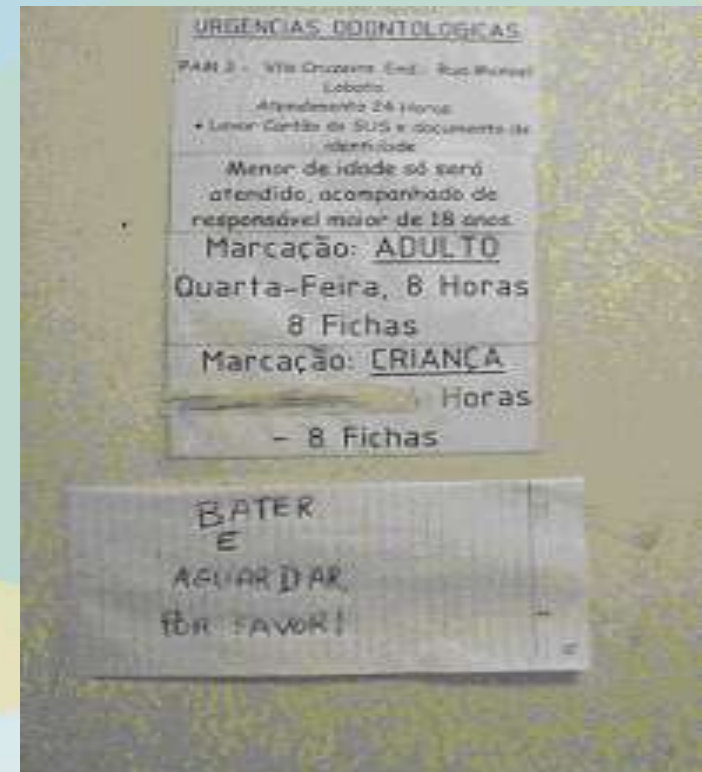 URGENCIAS ODONTOLOGICAS
PAM 3 - Vila Cruzeiro. End.: Rua Manoel
Lobato
Atendimento 24 Horas
• Levar Cartão do SUS e documento de
identidade
Menor de idade só será
atendido, acompanhado de
responsável maior de 18 anos.
Marcação: ADULTO
Quarta-Feira, 8 Horas
8 Fichas
Marcação: CRIANÇA
Horas
- 8 Fichas
BATER
E
AGUARDAR,
POR FAVOR!